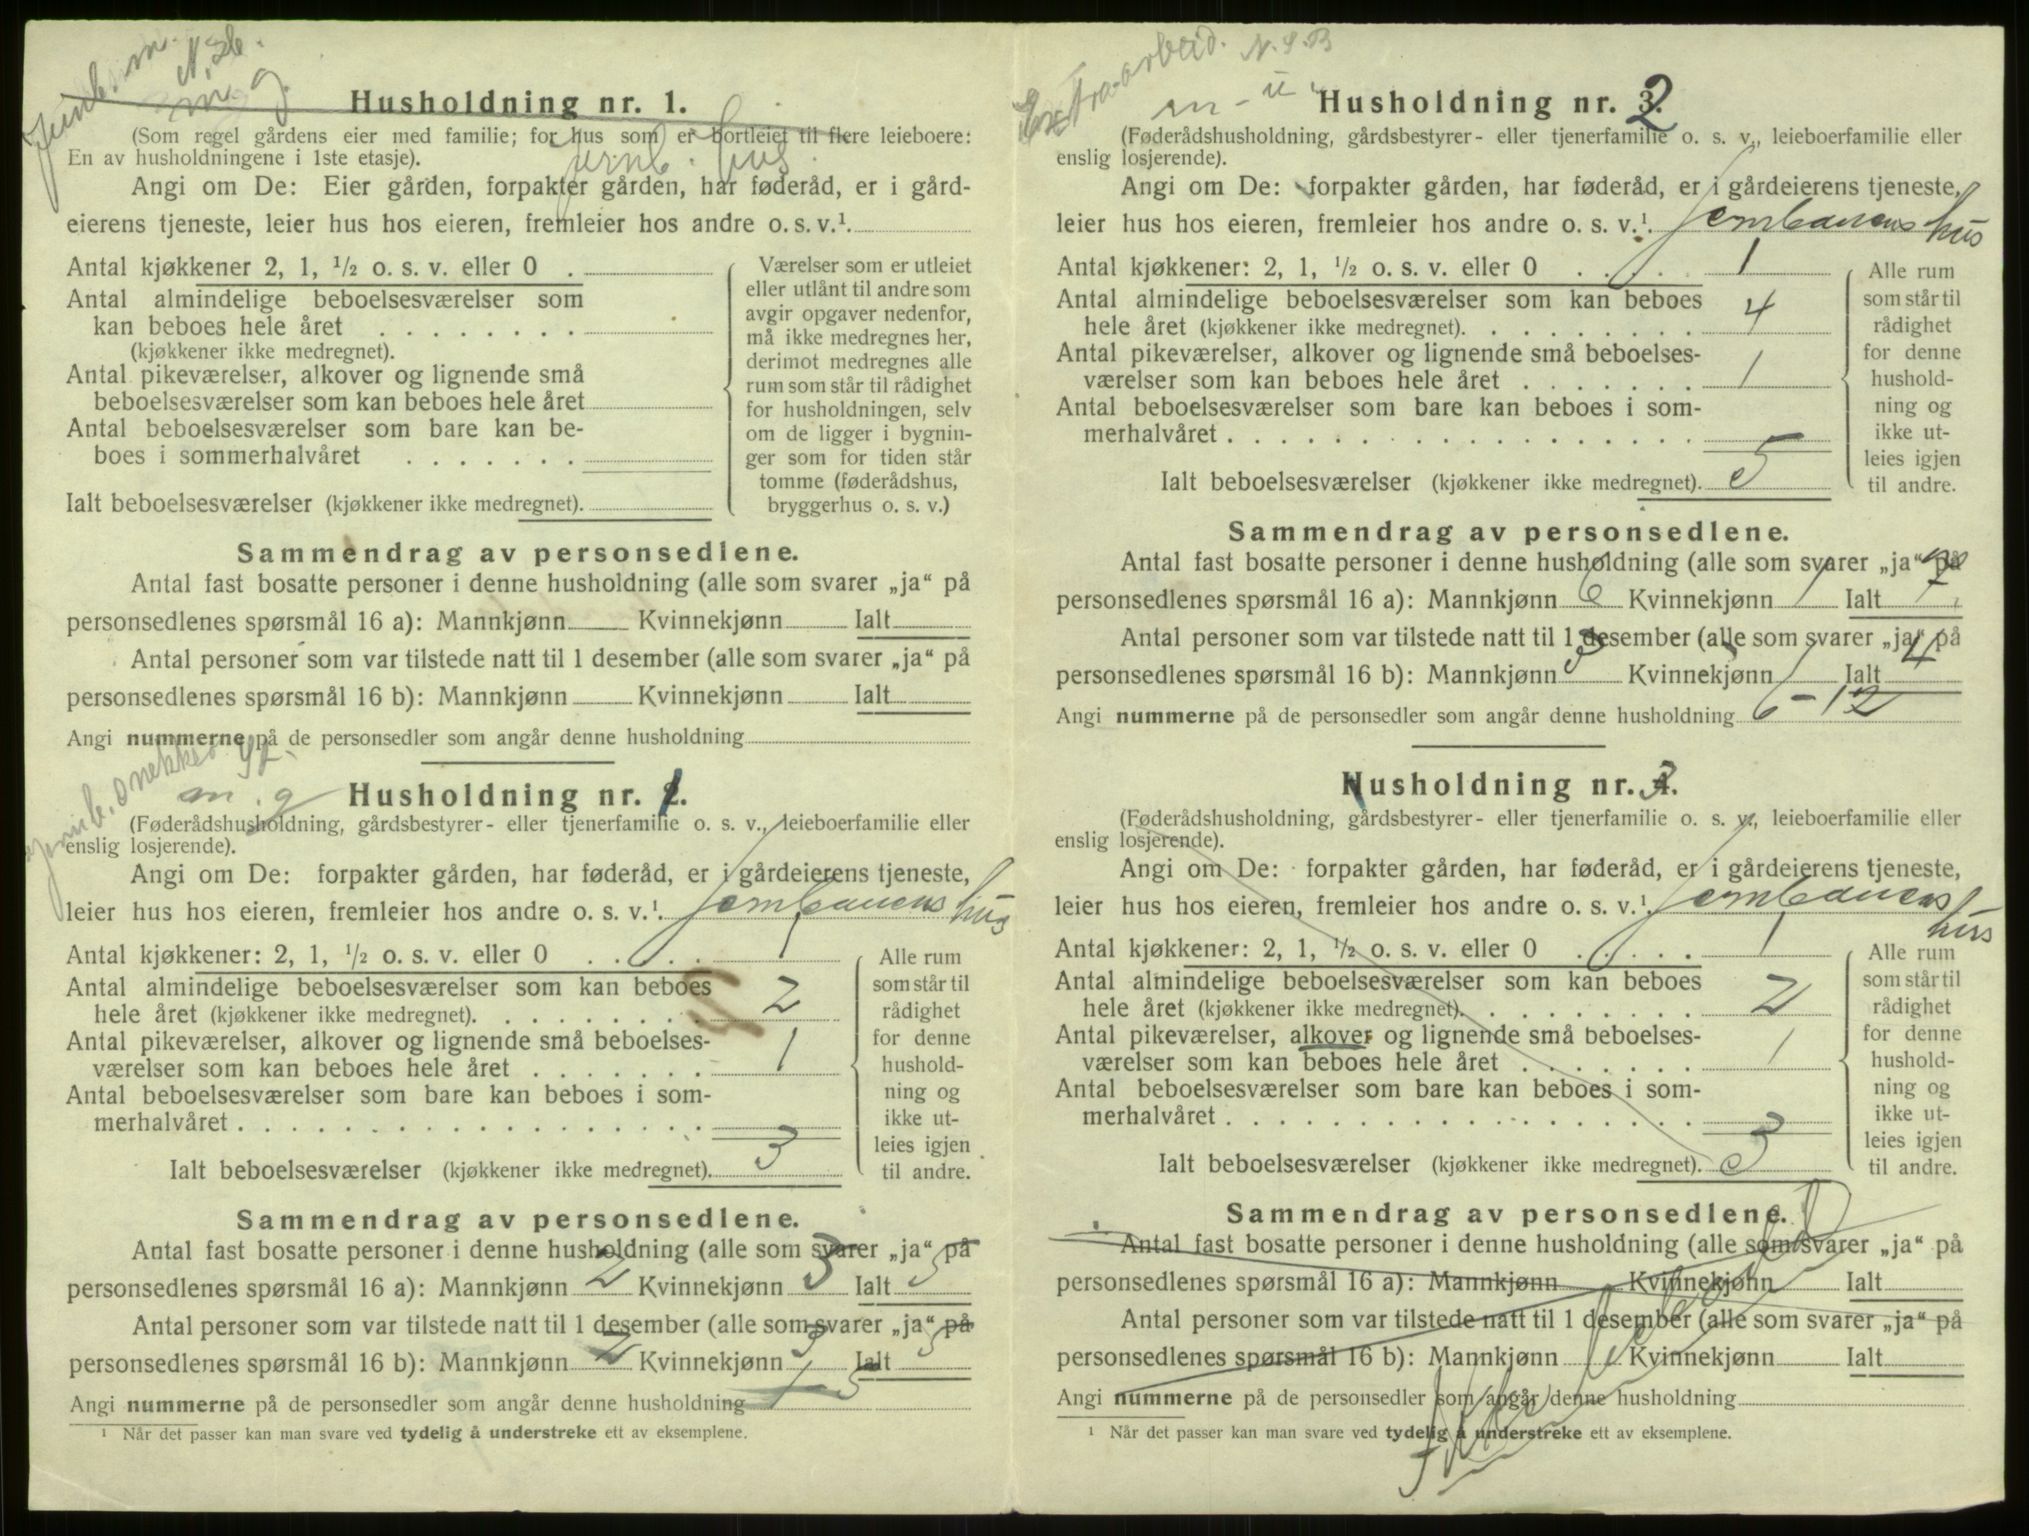 N. Sb.
m. g.
Husholdning nr. 1.
(Som regel gårdens eier med familie; for hus som er bortleiet til flere leieboere:
En av husholdningene i 1ste etasje).
Jernb. hus.
Angi om De: Eier gården, forpakter gården, har føderåd, er i gård-
eierens tjeneste, leier hus hos eieren, fremleier hos andre o. s. v.¹.
Antal kjøkkener 2, 1, ½ o. s. v. eller 0 .
Antal almindelige beboelsesværelser som
kan beboes hele året . . . . . . . .
(kjøkkener ikke medregnet).
Antal pikeværelser, alkover og lignende små
beboelsesværelser som kan beboes hele året
Antal beboelsesværelser som bare kan be-
boes i sommerhalvåret . . . . . . .
Ialt beboelsesværelser (kjøkkener ikke medregnet).
Værelser som er utleiet
eller utlånt til andre som
avgir opgaver nedenfor,
må ikke medregnes her,
derimot medregnes alle
rum som står til rådighet
for husholdningen, selv
om de ligger i bygnin-
ger som for tiden står
tomme (føderådshus,
bryggerhus o. s. v.)
Sammendrag av personsedlene.
Antal fast bosatte personer i denne husholdning (alle som svarer „ja“ på
personsedlenes spørsmål 16 a): Mannkjønn Kvinnekjønn Ialt
Antal personer som var tilstede natt til 1 desember (alle som svarer „ja“ på
personsedlenes spørsmål 16 b): Mannkjønn Kvinnekjønn Ialt
Angi nummerne på de personsedler som angår denne husholdning
m. g
Husholdning nr. 1.
(Føderådshusholdning, gårdsbestyrer- eller tjenerfamilie o. s. v., leieboerfamilie eller
enslig losjerende).
Angi om De: forpakter gården, har føderåd, er i gårdeierens tjeneste,
leier hus hos eieren, fremleier hos andre o. s. v.¹. Jernbanens hus
Antal kjøkkener: 2, 1, ½ o. s. v. eller 0 . . . . . 1
Antal almindelige beboelsesværelser som kan beboes
hele året (kjøkkener ikke medregnet). . . . . . . . . 2
Antal pikeværelser, alkover og lignende små beboelses-
værelser som kan beboes hele året . . . . . . . 1
Antal beboelsesværelser som bare kan beboes i som-
merhalvåret . . . . . . . . . . . . . . . . . .
Ialt beboelsesværelser (kjøkkener ikke medregnet). 3
Alle rum
som står til
rådighet
for denne
hushold-
ning og
ikke ut-
leies igjen
til andre.
Sammendrag av personsedlene.
Antal fast bosatte personer i denne husholdning (alle som svarer „ja“ på
personsedlenes spørsmål 16 a): Mannkjønn 2 Kvinnekjønn 3 Ialt 5
Antal personer som var tilstede natt til 1 desember (alle som svarer „ja“ på
personsedlenes spørsmål 16 b): Mannkjønn 2 Kvinnekjønn 3 Ialt 5
Angi nummerne på de personsedler som angår denne husholdning 1 - 5
¹ Når det passer kan man svare ved tydelig å understreke ett av eksemplene.
Extraarbeid. N. S. B
m - u.
Husholdning nr. 2
(Føderådshusholdning, gårdsbestyrer- eller tjenerfamilie o. s. v., leieboerfamilie eller
enslig losjerende).
Angi om De: forpakter gården, har føderåd, er i gårdeierens tjeneste,
leier hus hos eieren, fremleier hos andre o. s. v.¹. Jernbanens hus
Antal kjøkkener: 2, 1, ½ o. s. v. eller 0 . . . . . 1
Antal almindelige beboelsesværelser som kan beboes
hele året (kjøkkener ikke medregnet). . . . . . . . . 4
Antal pikeværelser, alkover og lignende små beboelses-
værelser som kan beboes hele året . . . . . . . 1
Antal beboelsesværelser som bare kan beboes i som-
merhalvåret . . . . . . . . . . . . . . . . . .
Ialt beboelsesværelser (kjøkkener ikke medregnet). 5
Alle rum
som står til
rådighet
for denne
hushold-
ning og
ikke ut-
leies igjen
til andre.
Sammendrag av personsedlene.
Antal fast bosatte personer i denne husholdning (alle som svarer „ja“ på
personsedlenes spørsmål 16 a): Mannkjønn 6 Kvinnekjønn 1 Ialt 7
Antal personer som var tilstede natt til 1 desember (alle som svarer „ja“ på
personsedlenes spørsmål 16 b): Mannkjønn 3 Kvinnekjønn 1 Ialt 4
Angi nummerne på de personsedler som angår denne husholdning 6 - 12
Husholdning nr. 3.
(Føderådshusholdning, gårdsbestyrer- eller tjenerfamilie o. s. v., leieboerfamilie eller
enslig losjerende).
Angi om De: forpakter gården, har føderåd, er i gårdeierens tjeneste,
leier hus hos eieren, fremleier hos andre o. s. v.¹. Jernbanens hus
Antal kjøkkener: 2, 1, ½ o. s. v. eller 0 . . . . . 1
Antal almindelige beboelsesværelser som kan beboes
hele året (kjøkkener ikke medregnet). . . . . . . . . 2
Antal pikeværelser, alkover og lignende små beboelses-
værelser som kan beboes hele året . . . . . . . 1
Antal beboelsesværelser som bare kan beboes i som-
merhalvåret . . . . . . . . . . . . . . . . . .
Ialt beboelsesværelser (kjøkkener ikke medregnet). 3
Alle rum
som står til
rådighet
for denne
hushold-
ning og
ikke ut-
leies igjen
til andre.
Sammendrag av personsedlene.
Antal fast bosatte personer i denne husholdning (alle som svarer „ja“ på
personsedlenes spørsmål 16 a): Mannkjønn Kvinnekjønn Ialt
Antal personer som var tilstede natt til 1 desember (alle som svarer „ja“ på
personsedlenes spørsmål 16 b): Mannkjønn Kvinnekjønn Ialt
Angi nummerne på de personsedler som angår denne husholdning
¹ Når det passer kan man svare ved tydelig å understreke ett av eksemplene.